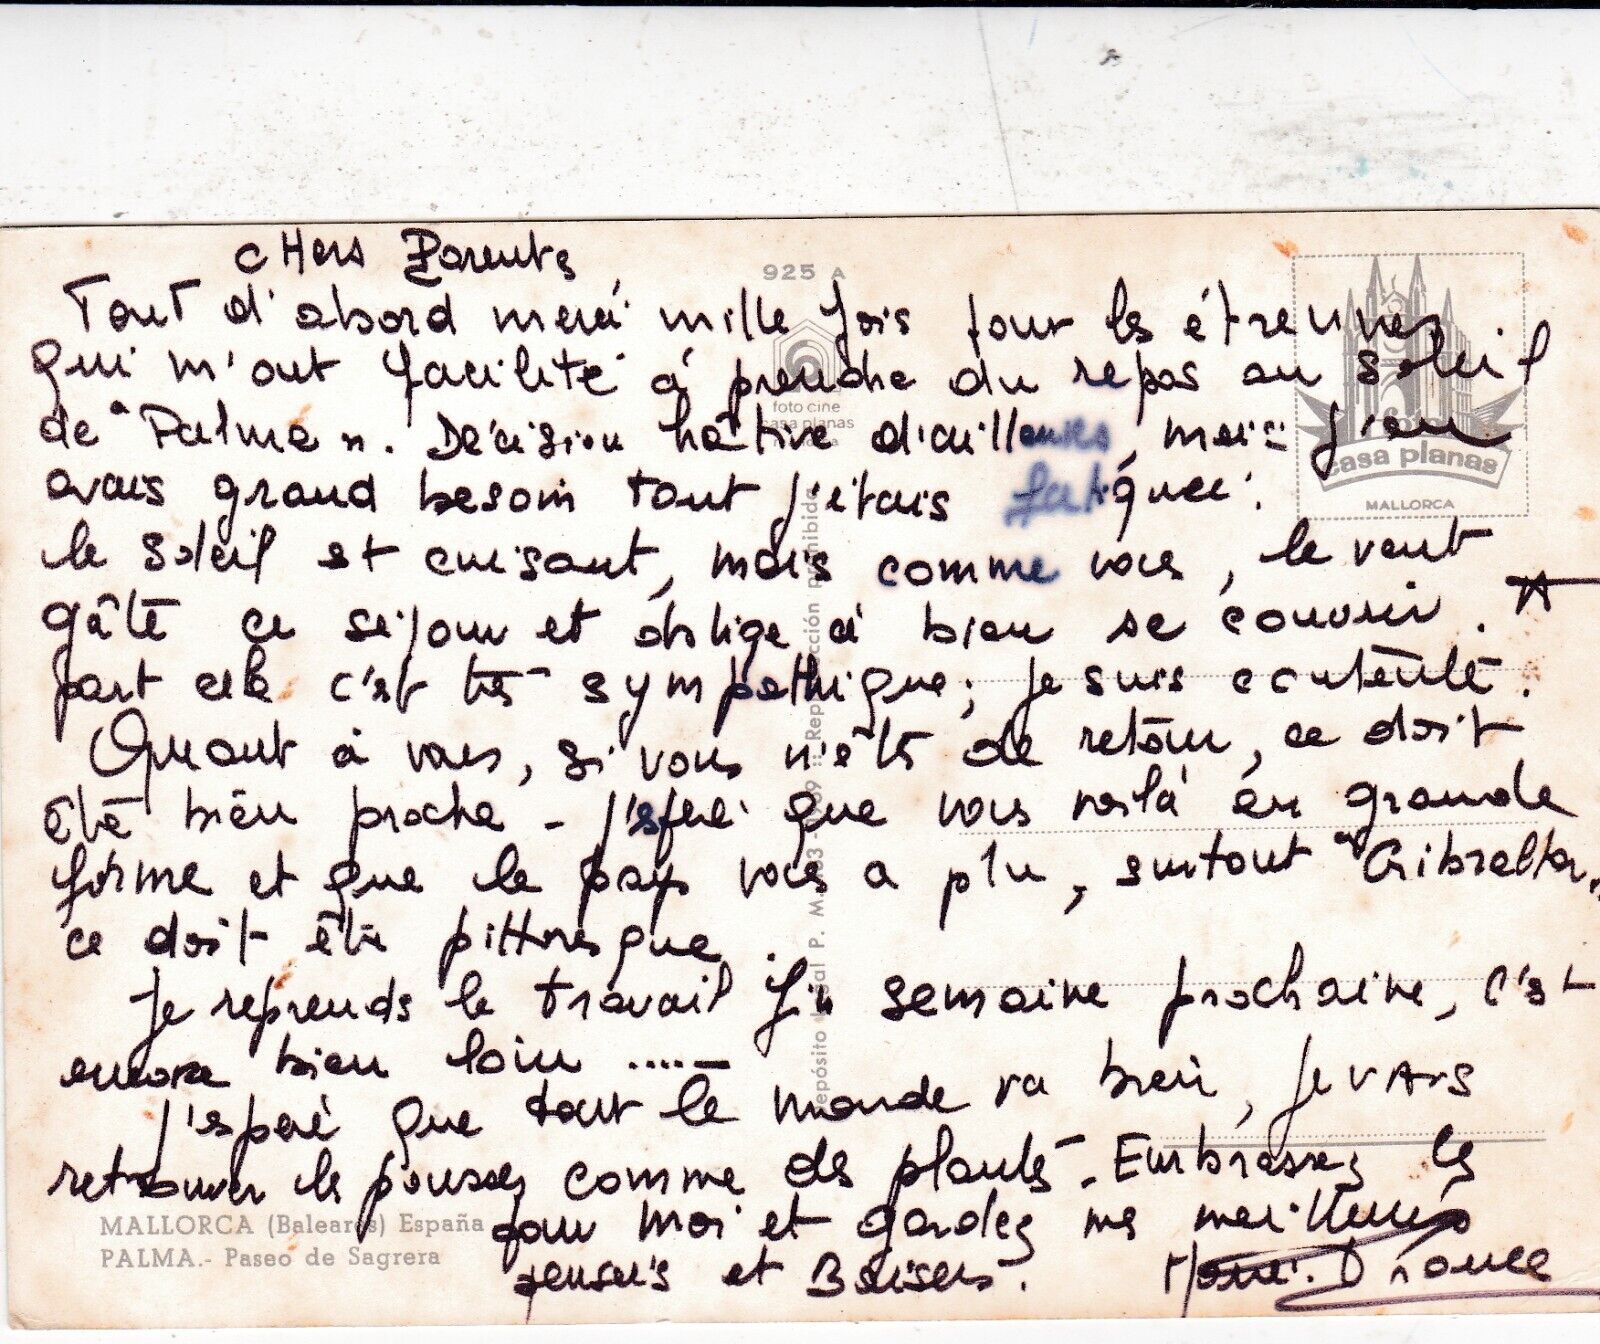 cHers Parents
925 A
Tout d'abord merci mille fois pour les étrennes
qui m'ont facilité à prendre du repos au soleil
de "Palma". Décision hâtive d'ailleurs, mais j'en
avais grand besoin tant j'étais fatiguée.
le soleil est cuisant, mais comme vous, le vent
gâte ce séjour et oblige à bien se couvrir. A
part cela c'est très sympathique; je suis contente.
Quant à vous, si vous n'êtes de retour, ce doit
être bien proche - j'espère que vous voilà en grande
forme et que le pays vous a plu, surtout "Gibraltar",
ce doit être pittoresque.
Je reprends le travail fin semaine prochaine, c'est
encore bien loin .....
J'espère que tout le monde va bien, je vais
retrouver les pousses comme des plantes. Embrassez les
pour moi et gardez mes meilleures
pensées et Baisers.
foto cine
casa planas
casa planas
MALLORCA
MALLORCA (Baleares) España
PALMA.- Paseo de Sagrera
Reproducción prohibida
Depósito Legal P. M.